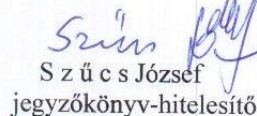 Szűcs
S z ű c s József
jegyzőkönyv-hitelesítő